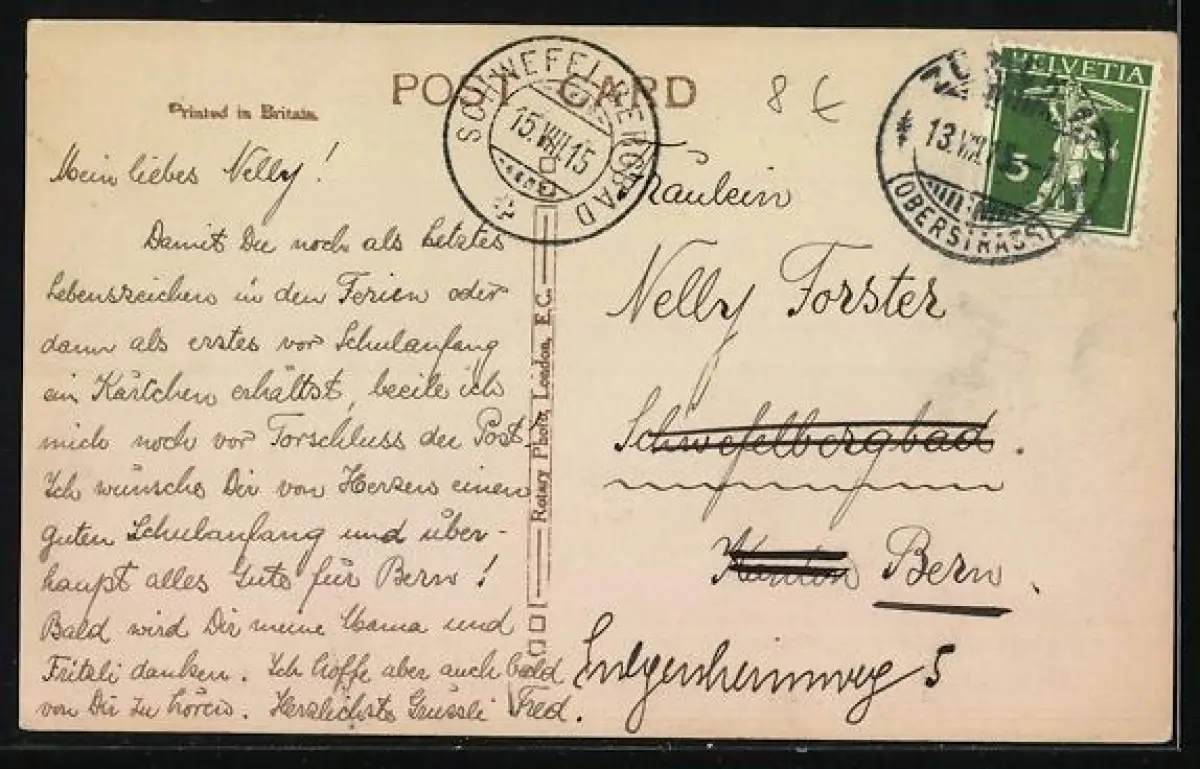 POST CARD
Printed in Britain.
8 €
SCHWEFELBERGBAD
15.VIII.15
ZÜRICH
13.VIII.15
(OBERSTRASS)
HELVETIA
5
Mein liebes Nelly!
Damit Du noch als letztes
Lebenszeichen in den Ferien oder
dann als erstes vor Schulanfang
ein Kärtchen erhältst, beeile ich
mich noch vor Torschluss der Post
Ich wünsche Dir von Herzen einen
guten Schulanfang und über-
haupt alles Gute für Bern!
Bald wird Dir meine Mama und
Fritzli danken. Ich hoffe aber auch bald
von Dir zu hören. Herzlichste Grüssli Fred.
Rotary Photo, London, E.C.
Fräulein
Nelly Forster
Schwefelbergbad.
Kanton Bern.
5